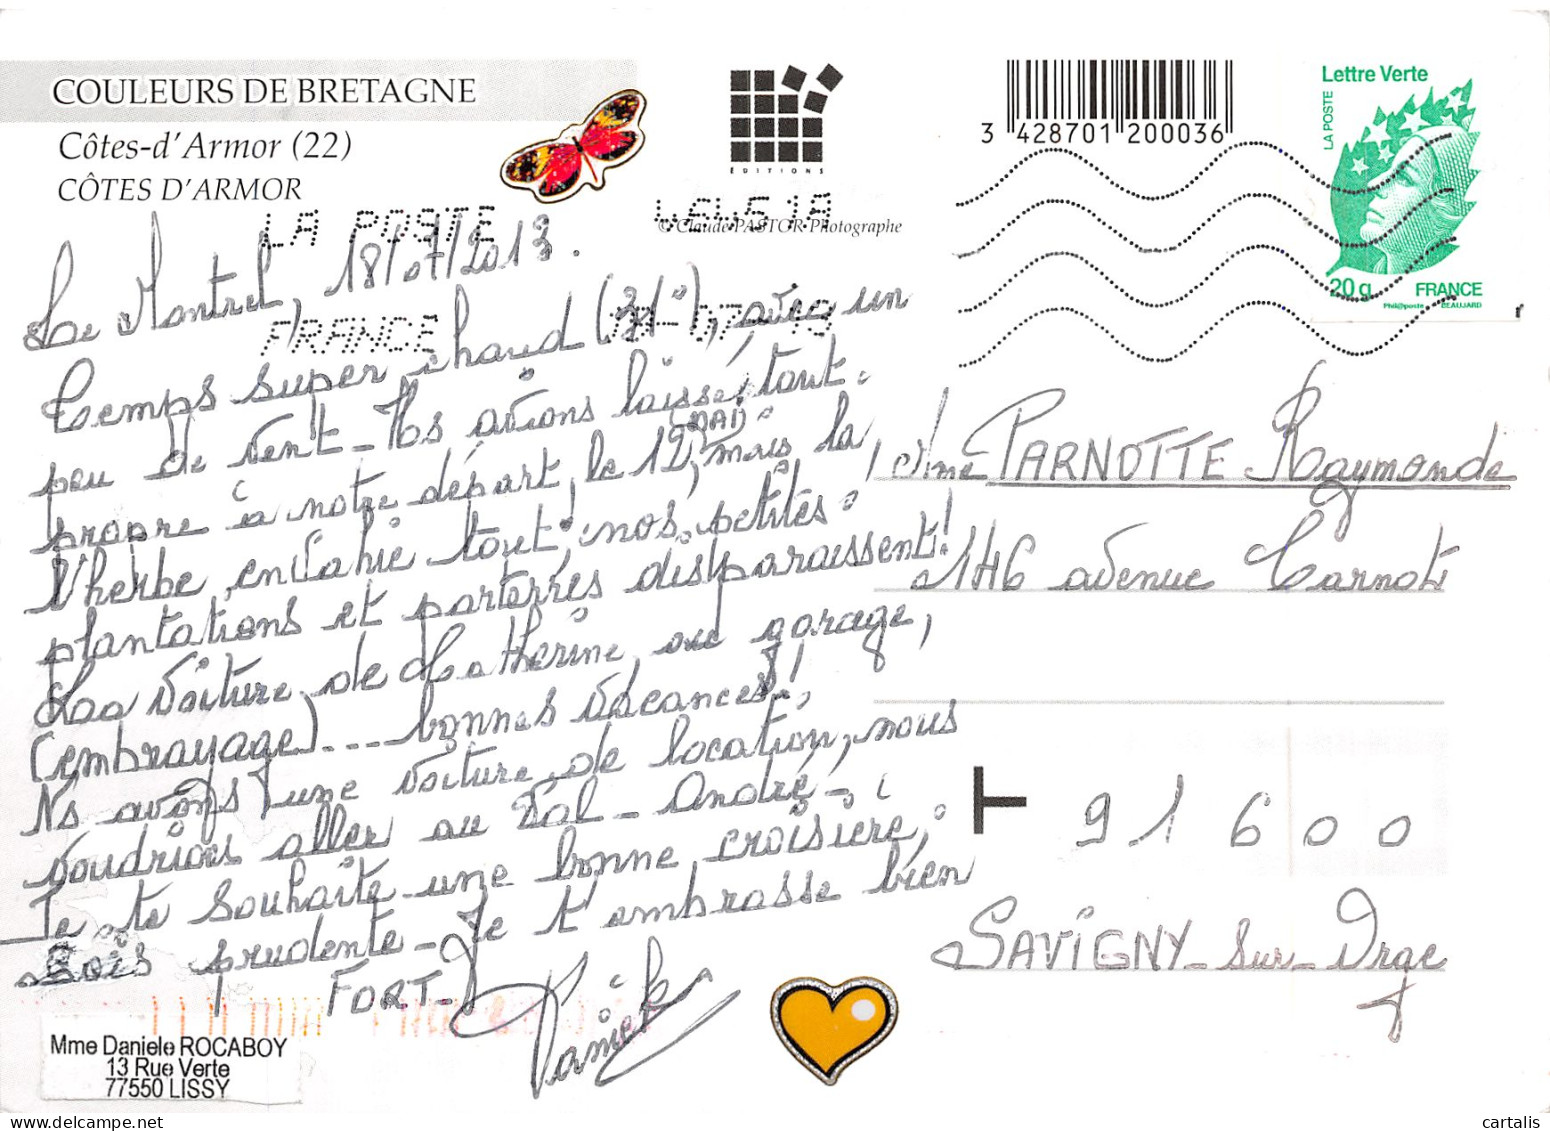 COULEURS DE BRETAGNE
Côtes-d'Armor (22)
CÔTES D'ARMOR
EDITIONS
© Claude PASTOR Photographe
3 428701 200036
Lettre Verte
LA POSTE
20g FRANCE
Phil@poste BEAUJARD
LA POSTE
FRANCE
Le Mantrel, 18/07/2013.
temps super chaud (31°), avec un
peu de vent - Ns avions laissé tout
propre à notre départ, le 12 MAI, mais la
l'herbe envahie tout, nos petites
plantations et parterres disparaissent!
La voiture de Catherine, au garage,
(embrayage)... bonnes vacances!
Ns avons une voiture de location, nous
voudrions aller au Val-André -
Je te souhaite une bonne croisière,
Sois prudente - Je t'embrasse bien
FORT -
Mme PARNOTTE Raymonde
146 avenue Carnot
91600
SAVIGNY-sur-Orge
Mme Daniele ROCABOY
13 Rue Verte
77550 LISSY
cartalis